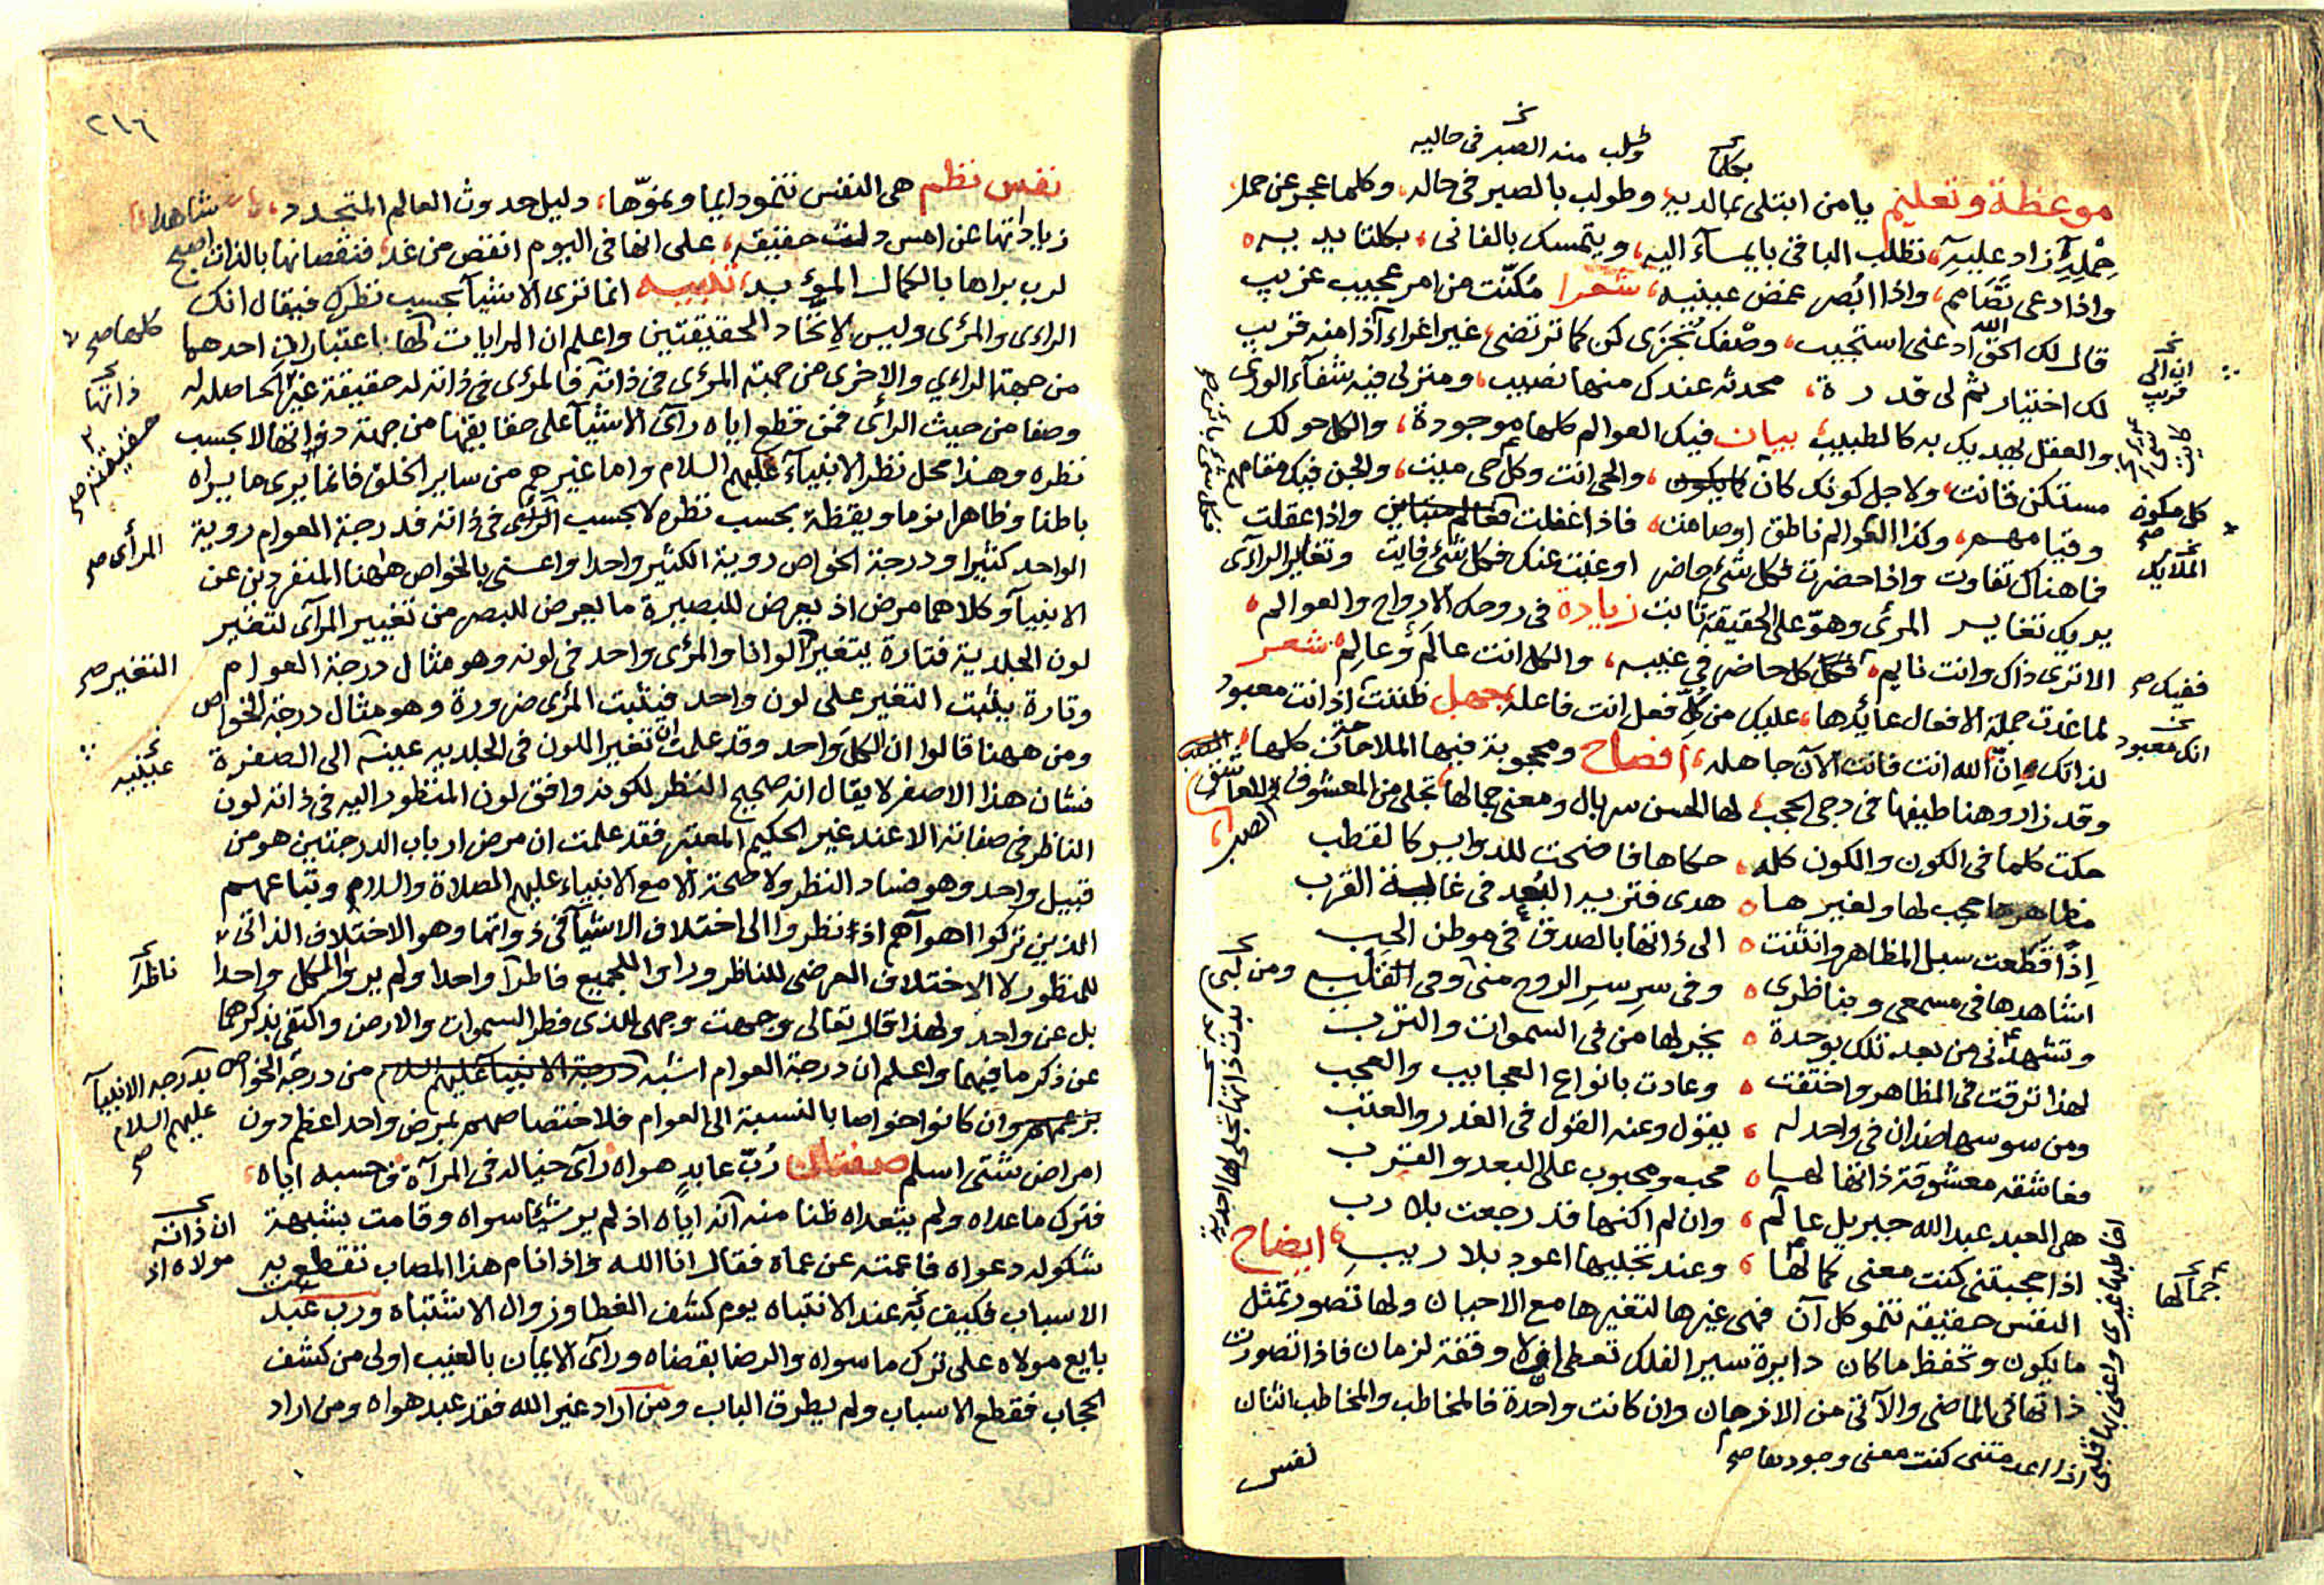 وطلب منه الصبر فى حاليه
موعظة وتعليم يا من ابتلى بمالديه وطولب بالصبر فى حاله، وكلما عجز عن حمل
حِمْلِهِ زاد عليه، تطلب الباقى بايماء اليه، ويتمسك بالفانى، بكلتا يديه
واذا دعى تصامم، واذا ابصر غمض عينيه، شعرا مُكنّت من امر عجيب غريب
قال لك الحق ادعنى استجيب، وصْفك تُجزى كن كما ترتضى غير اغراء اذا منه قريب
لك اختيار ثم لى قدرة، محدثه عندك منها نصيب، ومنزلى فيه شفآء الورى
والعقل يهديك به كالطبيب بيان فيك العوالم كلها موجودة، والكل حولك
مستكن فانت، ولاجل كونك كان، والحى انت وكل حى ميت، والجن فيك مقامهم
وقيامهم، وكذا العوالم ناطق اوصامت، فاذا غفلت واذا عقلت
فما هناك تفاوت واذا حضرت فكل شئ حاضر اوغبت عنك فكل شئ فايت وتغاير الرآى
يريك تغاير المرئى وهو على الحقيقة ثابت زيادة فى روحك الارواح والعوالم
الا ترى ذاك وانت نايم فكل كل حاضر فى غيبه، والكل انت عالَم وعالِم شعر
لما غدت جملة الافعال عائدها، عليك من كل فعل انت فاعله بجهل ظننت اذ انت معبود
لذاتك وان الله انت فانت الآن جاهله، افصاح ومحجوبة فيها الملاحة كلها
وقد زار وهنا طيفها فى دجى الحجب لها الحسن سربال ومعنى جمالها تجلى من المعشوق للعاشق الصب
حكت كلما فى الكون والكون كله، حكاها فاضحت للدواير كالقطب
مظاهرها حجب لها ولغيرها هدى فتريد البُعد فى غاية القرب
اِذًا قطعت سبل المظاهر وانثنت الى ذاتها بالصدق فى موطن الحب
اشاهدها فى مسمعى وبناظرى وفى سر سر الروح منى وفى القلب
وتشهدنى من بعد تلك بوحدة يخبر لها من فى السموات والترب
لهذا ترقت فى المظاهر واختفت وعادت بانواع العجايب والعجب
ومن سوسها ضدان فى واحد له، يقول وعنه القول فى الغدر والعتب
فعاشقه معشوقة ذاتها لها محب ومحبوب على البعد والقرب
هى العبد عبد الله جبريل عالم، وان لم اكنها قد رجعت بلا رب
اذا حجبتنى كنت معنى كمالها، وعند تجليها اعود بلا ريب ايضاح
النفس حقيقة تنمو كل آن فهى غيرها لتغيرها مع الاحيان ولها تصور تمثل
ما يكون وتحفظ ما كان دايرة سير الفلك تعطى وقفة لزمان فاذا تصورت
ذاتها فى الماضى والآتى من الازمان وان كانت واحدة فالمخاطب والمخاطب اثنان
اذا اعدمتنى كنت معنى وجودها صح
نفس
ان الى
قريب
كل مكون
صح
الملايك
ففيك صح
انك معبود
جمالها
٢١٦
نفس نظم هى النفس تنمو دايما ونموّها، دليل حدوث العالم المتجدد، شاهدا
زياداتها عن امس دلت حقيقة، على انها فى اليوم انقص من غد، فنقصانها بالذات اصبح
لرب براها بالكمال المؤبد، تنبيه انما ترى الاشيآ بحسب نظرك فيقال انك
الراءى والمرئى وليس لاتحاد الحقيقتين واعلم ان المرايات لها اعتباران احدهما
من جهة الراءي والاخرى من جهة المرئى فى ذاته فالمرئى فى ذاته له حقيقة غير الحاصلة له
وصفا من حيث الرائى فمن قطع اياه رآى الاشيآ على حقايقها من جهة ذواتها لا بحسب
نظره وهذا محل نظر الانبيآء عليهم السلام واما غيرهم من ساير الخلق فانما يرى ما يراه
باطنا وظاهرا نوما ويقظة بحسب نظره لا بحسب المرئى فى ذاته فدرجة العوام روية
الواحد كثيرا ودرجة الخواص روية الكثير واحدا واعنى بالخواص ههنا المنفردين عن
الانبيآ وكلاهما مرض اذ يعرض للبصيرة ما يعرض للبصر من تغيير المرآى لتغير
لون الجلدية فتارة يتغير الوانا والمرئى واحد فى لونه وهو مثال درجة العوام
وتارة يثبت التغير على لون واحد فيثبت المرئى ضرورة وهو مثال درجة الخواص
ومن ههنا قالوا ان الكل واحد وقد علمت ان تغير اللون فى الجلديه عينه الى الصفرة
فشان هذا الاصفر لا يقال انه صحيح النظر لكونه وافق لون المنظور اليه فى ذاته لون
الناظر فى صفاته الا عند غير الحكيم المعتبر فقد علمت ان مرض ارباب الدرجتين هو من
قبيل واحد وهو فساد النظر ولا صحة الا مع الانبياء عليهم الصلاة والسلام وتباعهم
الذين تركوا اهوآهم اذ نظروا الى اختلاف الاشيآ فى ذواتها وهو الاختلاف الذاتى
للمنظور لا الاختلاف العرضى للناظر وراوا للجميع فاطرا واحدا ولم يروا الكل واحدا
بل عن واحد ولهذا قال تعالى وجهت وجهى للذى فطر السموات والارض واكتفى بذكرهما
عن ذكر ما فيهما واعلم ان درجة العوام اشبه درجة الانبيآ عليهم السلام من درجة الخواص
بزعمهم وان كانوا خواصا بالنسبة الى العوام فلاختصاصهم بمرض واحد اعظم دون
امراض شتى اسلم صفتان رُبّ عابدٍ هواه رآى خياله فى المرآة فحسبه اياه
فترك ما عداه ولم يتعداه ظنا منه انه اياه اذ لم ير شيئا سواه وقامت بشبهة
شكوله دعواه فاعمته عن عماه فقال انا الله واذا نام هذا المصاب تقطع به
الاسباب فكيف به عند الانتباه يوم كشف الغطا وزوال الاشتباه ورب عبد
بايع مولاه على ترك ما سواه والرضا بقضاه ورآى الايمان بالغيب اولى من كشف
الحجاب فقطع الاسباب ولم يطرق الباب ومن اراد غير الله فقد عبد هواه ومن اراد
كلها صح
ذاتها
حقيقته صح
المرأى صح
التغير صح
عينيه
ناظرا
بدرجه الانبيآ
عليهم السلام
صح
ان ذاته
مولاه اذ